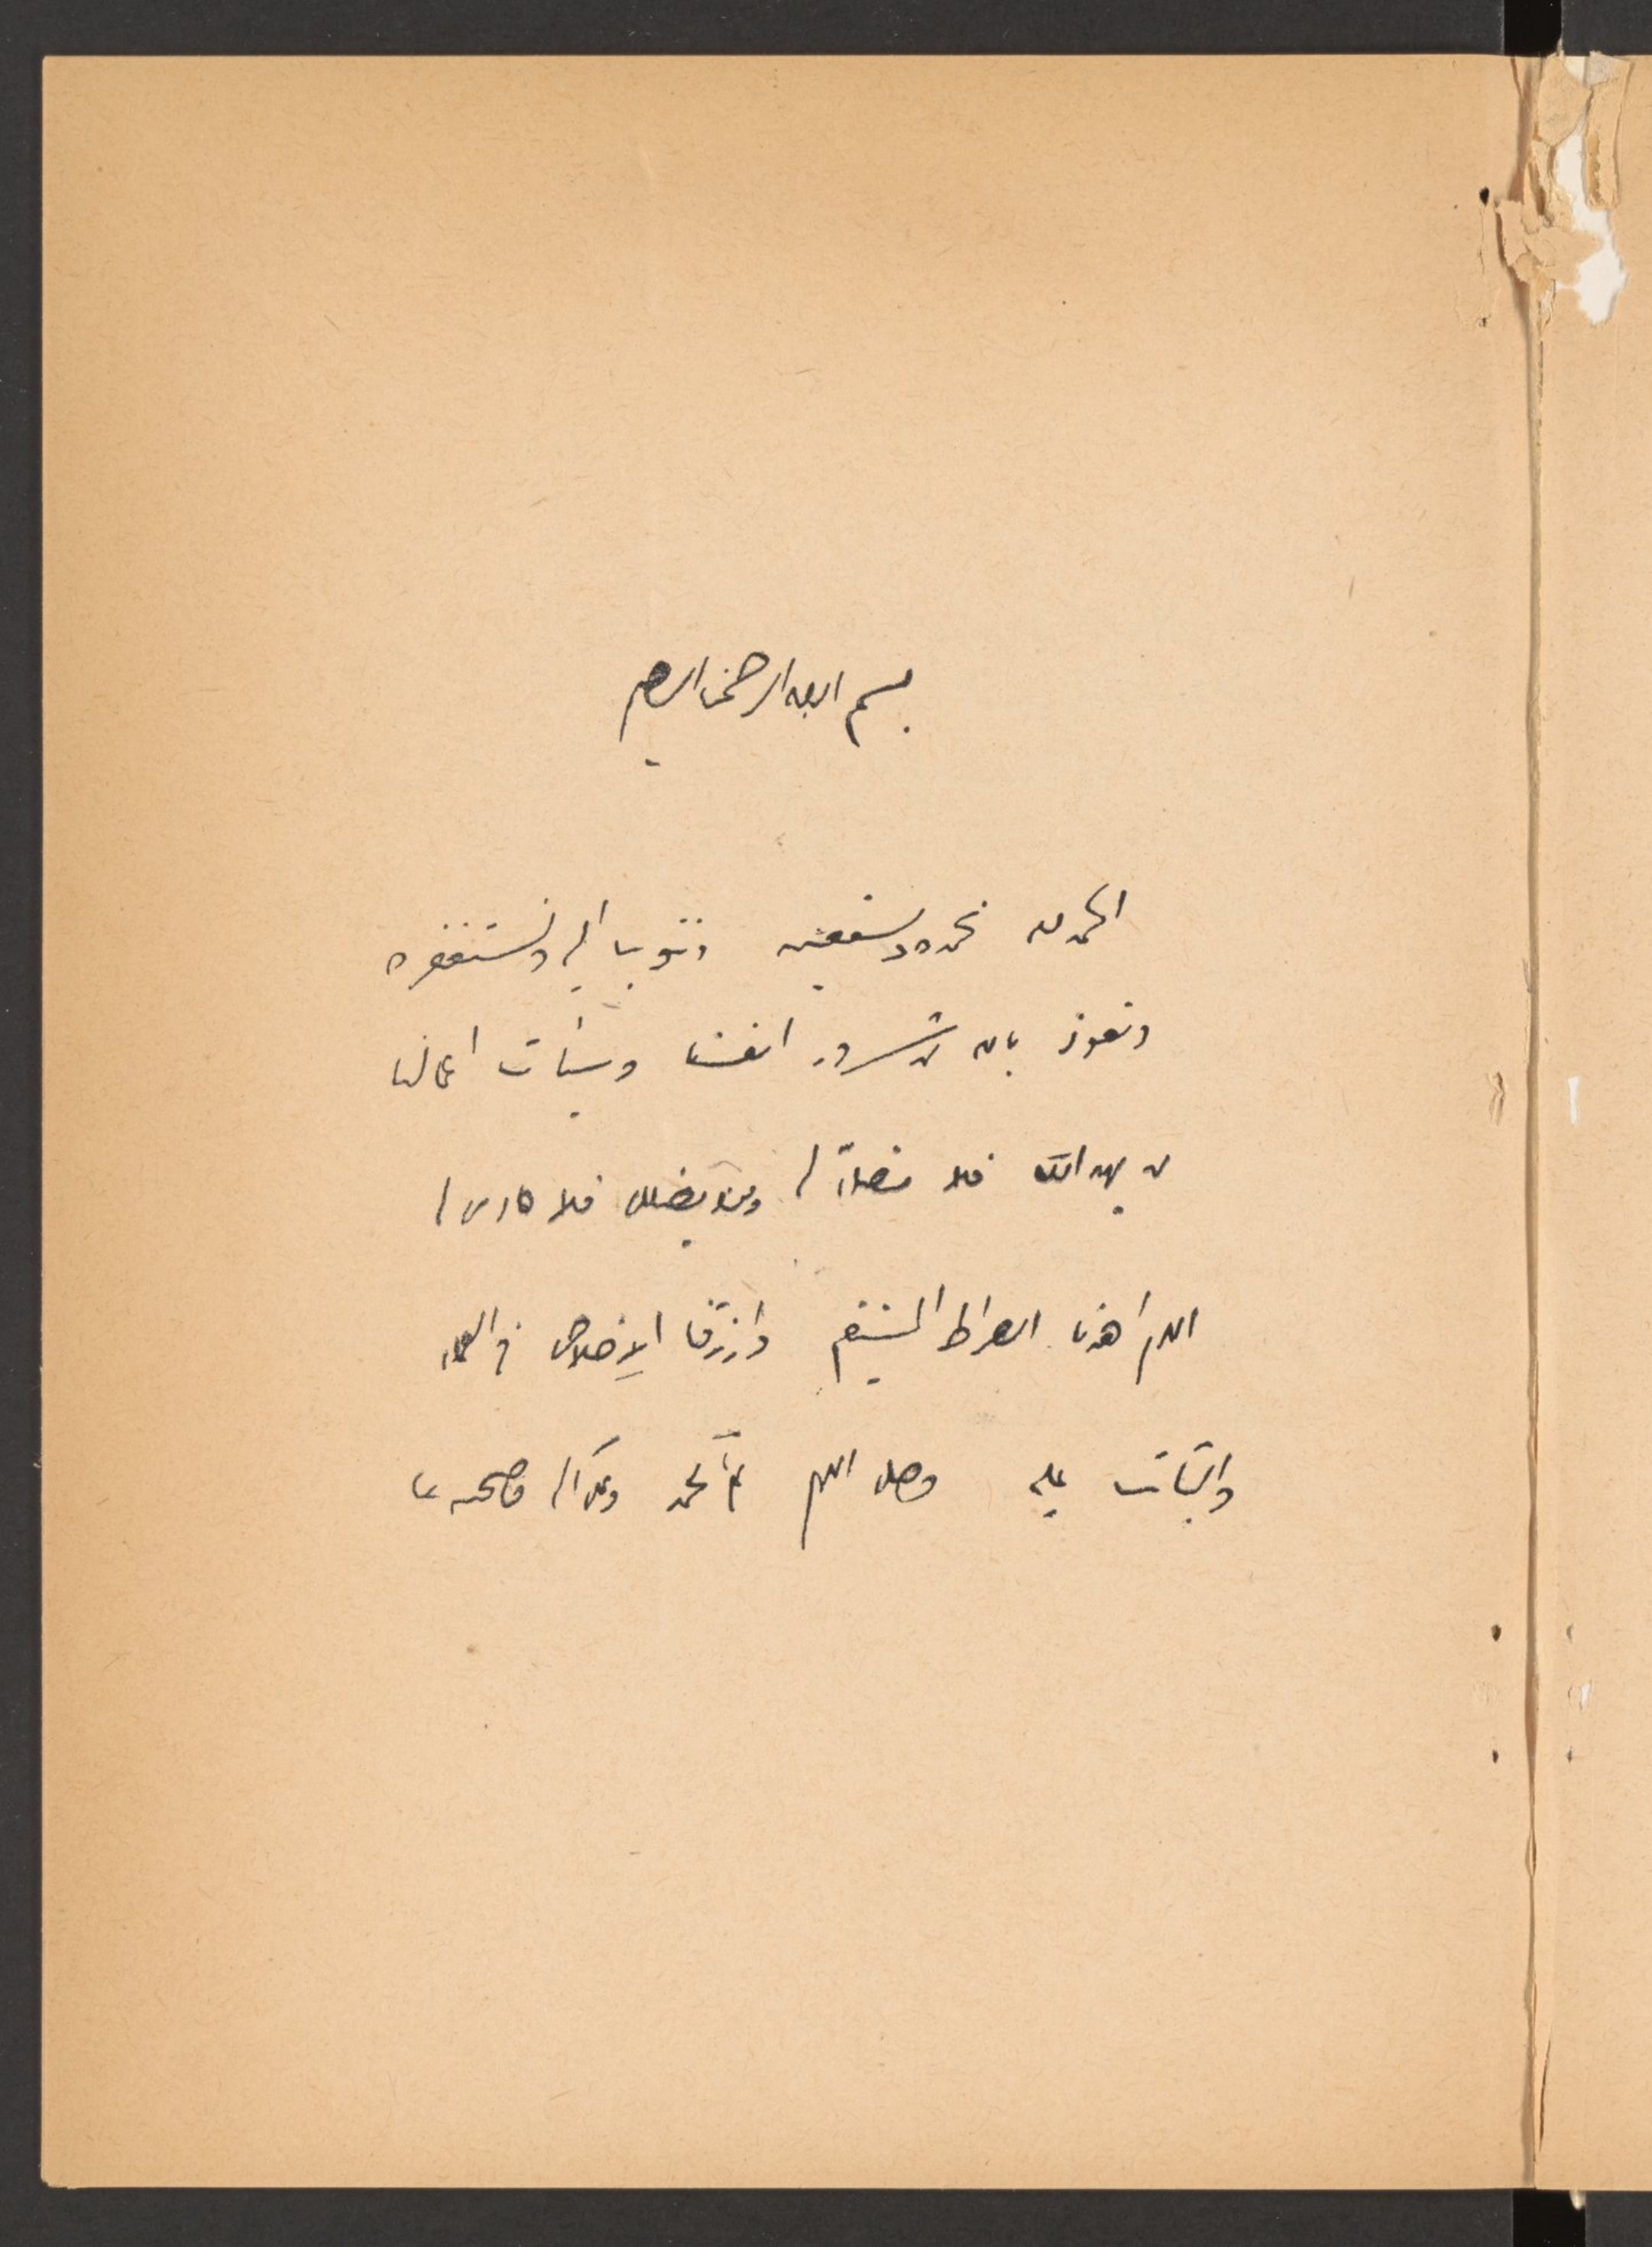 بسم الله الرحمن الرحيم
الحمد لله نحمده ونستعينه ونتوب إليه ونستغفره
ونعوذ بالله من شرور انفسنا وسيئات اعمالنا
من يهد الله فلا مضل له ومن يضلل فلا هادي له
اللهم اهدنا الصراط المستقيم وارزقنا الإخلاص في العمل
والثبات عليه وصل اللهم على محمد وعلى آله وصحبه